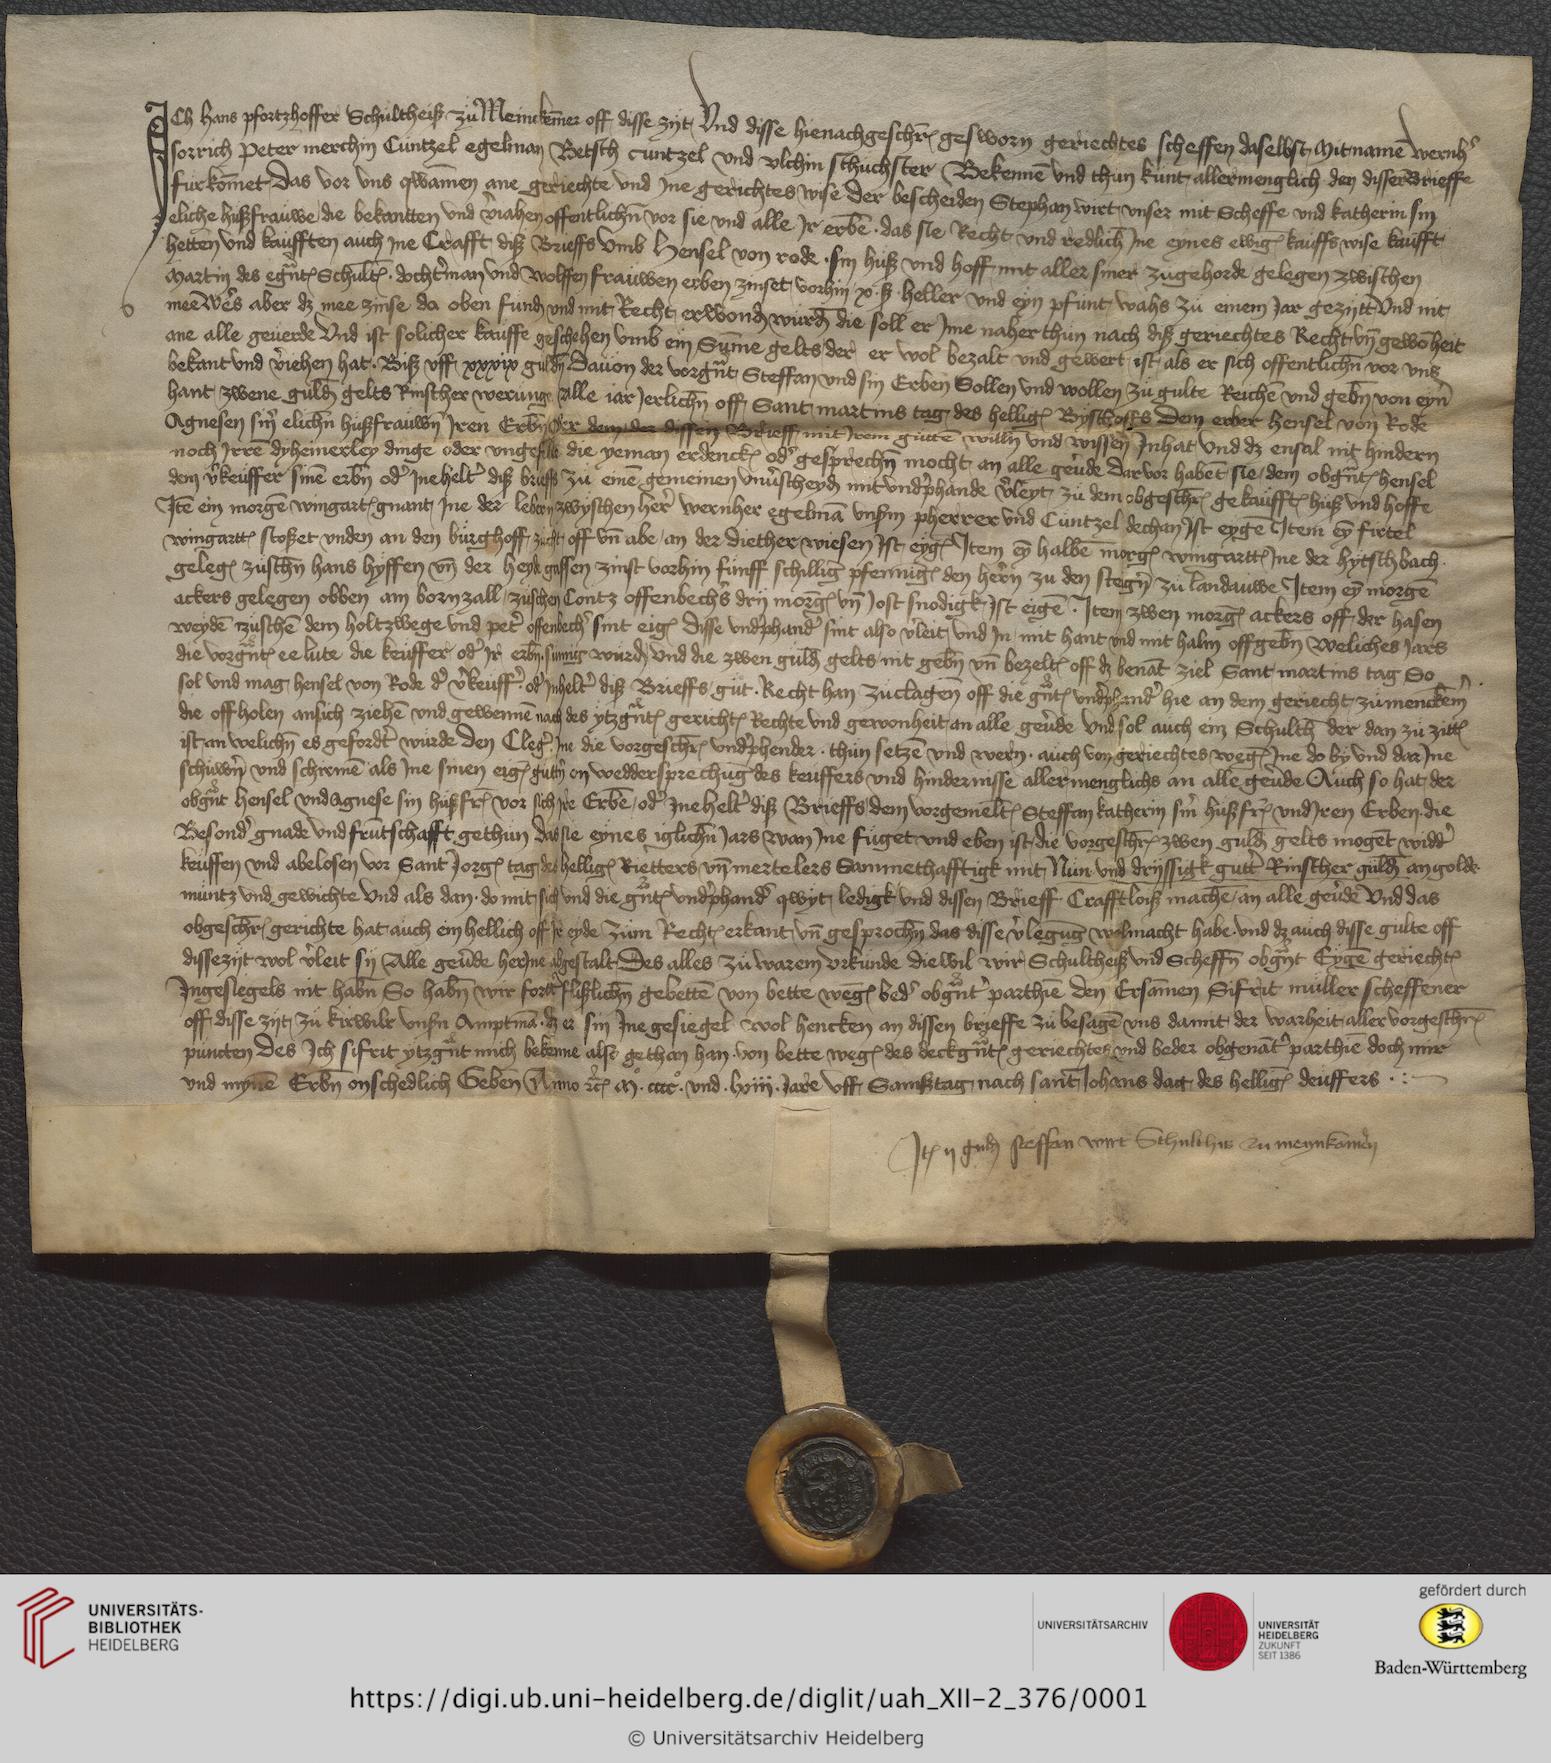 ICh hans pfortzhoffer Schultheiß zu Meinkem̄er off disse zijt Vnd disse hienachgeschr̄ gesworn geriechtes scheffen daselbst mit namē wernhˀ
sorrich Peter merchin Cuntzel egelman Betsch cuntzel vnd vlchin schuchster Bekennē vnd thun kunt allermenglich den disser Brieffe
furkom̄et Das vor vns qwamen ane geriechte vnd Jne gerichtes wise Der bescheiden Stephan wirt vnser mit Scheffe vnd katherin sin
eliche hußfrauwe die bekantten vnd v̓iahen offentlichn̄ vor sie vnd alle Jr erbē das sie Recht vnd redlich Jne eynes ewigē kauffs wise kaufft
hetten vnd kaufften auch Jne Crafft diß Brieffs vmb Hensel von rode sin huß vnd hoff mit aller siner zugehorde gelegen zwischen
Martin des egn̄t̄ Schult̄ docht̓man vnd wolffen frauwen erben zinset vorhin x ß heller vnd eyn pfunt wahs zu einem Jar gezijtt Vnd nit
mee Wēs aber dz mee zinse da oben fundn̄ vnd mit Recht erwonden wurdn̄ die soll er Jme naher thun nach diß geriechtes Recht vn̄ gewonheit
ane alle geuerde Vnd ist solicher kauffe geschehen vmb ein Sum̄e gelts der er wol bezalt vnd gewert ist als er sich offentlichn̄ vor vns
bekant vnd v̓iehen hat Biß vff xxxix guldn̄ Dauon der vorgn̄t Steffan vnd sin Erben Sollen vnd wollen zu gulte Reichē vnd gebn̄ von eyn̄
hant zwene guldn̄ gelts Rinscher werunge Alle iar Jerlichn̄ off Sant martins tag des helligē Byschoffs Dem erber Hensel von Rode
Agnesen sin̄ elichn̄ hußfrauwn̄ Jren Erbn̄ oder dem der dissen Brieff mit Jrem gutten willn̄ vnd wissen Jnhat Vnd dz ensal nit hindern
noch Jrrē dyheinerley dinge oder vngefelle die yeman erdenckē odˀ gesprechn̄ mocht an alle geu̓de Darvor habent sie dem obgn̄tē hensel
dem v̓keuffer sinē erbn̄ odˀ Jnheltˀ diß brieffs zu einē gemeinen vnu̓scheydn̄ mit vnd̓phande v̓leyt zu dem obgeschr̄ gekaufftē huß vnd hoffe
Jtē ein morgē wingartē gnant Jne der lebern zwyschen her̄ wernher egelmā vnsm pherrer vnd Cuntzel dechan Jst eyge Jtem ey̅ firtel
wingartē stoßet vnden an den burghoff zucht off vn̄ abe an der Diether wiesen Jst eygē Jtem ey̅ halbē morgē wingarttē Jne der hytschbach
gelegē zuschn̄ hans hyffen vn̄ der heyde gassen zinst vorhin funff schillig pfennigē den her̄n zu den stegn̄ zu landauwe Jtem ey̅ morgē
ackers gelegen obben am bornzall zuschen Contz offenbechs drij morgē vn̄ Jost snodigk Jst eigē Jtem zwen morgē ackers off der hasen
weydē zuschē dem holtzwege vnd petˀ offenbechˀ sint eigē Disse vnd̓phandˀ sint also v̓leit vnd Jn mit hant vnd mit halm offgebn̄ Weliches Jars
die vorgn̄tē ee lute die keuffer odˀ Jr erbn̄ sumig wurdn̄ vnd die zwen guldn̄ gelts nit gebn̄ vn̄ bezeltē off dz benāt ziel Sant martins tag So
sol vnd mag hensel von Rode dˀ v̓keuffˀ odˀ Jnheltˀ diß Brieffs gut Recht han zuclagen off die gn̄tē vnd̓phandˀ hie an dem geriecht zu menckem̄
die off holen ansich ziehē vnd gewennē nach des ytzgn̄tē gerichtē Rechte vnd gewonheit an alle geu̓de Vnd sol auch ein Schulth̄ der dan zu zittē
ist an welichn̄ es gefordt̓ wurde Den Clegˀ Jne die vorgeschr̄ vnd̓phender thun setzē vnd wern auch von geriechtes wegē Jne do by vnd dar Jne
schuwn̄ vnd schremē als Jne sinen eigē gutn̄ on weddersprechūg des keuffers vnd hindernisse allermenglichs an alle geu̓de Auch so hat der
obgn̄t Hensel vnd Agnese sin hußfr̄ vor sich Jre Erbē odˀ Jneheltˀ diß Brieffs dem vorgemeltē Steffan katherin sin̄ hußfr̄ vnd Jren Erben die
Besondˀ gnade vnd frūtschafft gethun das sie eynes iglichn̄ Jars wan Jne fuget vnd eben ist die vorgeschr̄ zwen guldn̄ gelts mogēt widdˀ
keuffen vnd abelosen vor Sant Jorgē tag des helligē Rietters vn̄ mertelers Sammethafftigk mit Nun vnd drijssigk guttˀ Rinscher guldn̄ an golde
muntz vnd gewichte Vnd als dan do mit sich vnd die gn̄tē vnd̓phandˀ qwyt ledigk vnd dissen Brieff Crafftloiß machē an alle geu̓de Vnd das
obgeschr̄ gerichte hat auch ein hellich off Jr eyde zum Rechtē erkant vn̄ gesprochn̄ das disse v̓legung wolmacht habe vnd dz auch disse gulte off
disse zijt wol v̓leit sij Alle geu̓de her Jne abgestalt Des alles zu warem vrkunde die wil wir Schultheiß vnd Scheffn̄ obgn̄t Eygē geriechtē
Jngesiegels nit habn̄ So habn̄ wir fort flißlichn̄ gebettē von bette wegē bedˀ obgn̄tˀ parthiē den Ersāmen Sifrit muller scheffener
off disse zijt zu kirwilr vnsn̄ Amptmā dz er sin Jne gesiegel wol hencken an dissen brieffe zu besagē vns damit der warheit aller vorgeschr̄
puncten Des Jch Sifrit ytzgn̄t mich bekenne also gethan han von bette wegē des deckgn̄tē geriechtes vnd beder obgenātˀ parthie doch mir
vnd mynē Erbn̄ onschedlich Geben Anno &c̄ M° cccc° vnd lxiij Jare vff Samßtag nach sant Johans dag des helligē deuffers
Jtē ij guldn̄ steffan wirt Schulthis zu meynkamer
UNIVERSITÄTS-
BIBLIOTHEK
HEIDELBERG
UNIVERSITÄTSARCHIV
UNIVERSITÄT
HEIDELBERG
ZUKUNFT
SEIT 1386
gefördert durch
Baden-Württemberg
https://digi.ub.uni-heidelberg.de/diglit/uah_XII-2_376/0001
© Universitätsarchiv Heidelberg